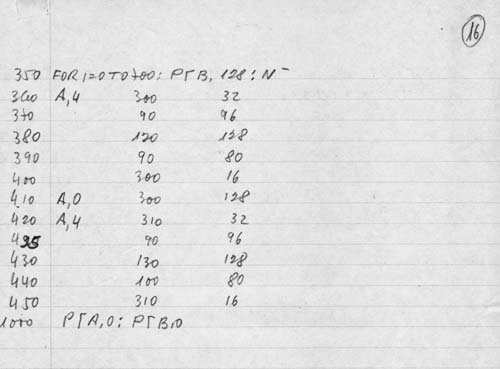 16
350 FOR I=0 TO 700: PΓB, 128: N-
360 A,4 300 32
370 90 96
380 120 128
390 90 80
400 300 16
410 A,0 300 128
420 A,4 310 32
425 90 96
430 130 128
440 100 80
450 310 16
1000 PΓA,0: PΓB,0